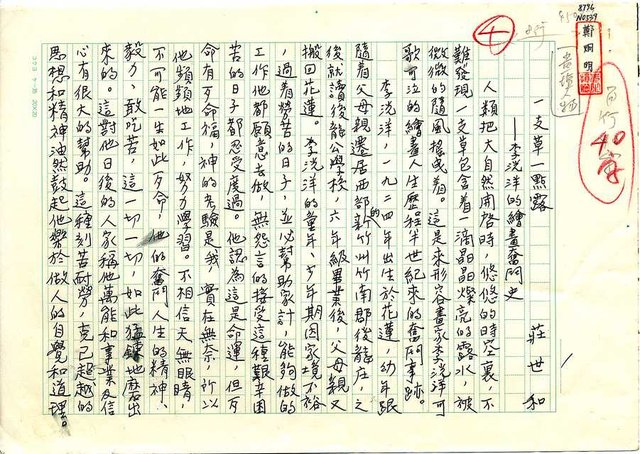 一支草一點露
——李洸洋的繪畫奮鬥史
莊世和
人類把大自然開啓時,悠悠的時空裏,不
難發現一支草包含着一滴晶晶燦亮的露水,被
微微的隨風搖曳着。這是來形容畫家李洸洋可
歌可泣的繪畫人生歷程半世紀來的奮鬥事跡。
李洸洋,一九二四年出生於花蓮,幼年跟
隨着父母親遷居西部新竹州竹南郡後龍庄,之
後就讀後龍公學校,六年級畢業後,父母親又
搬回花蓮。李洸洋的童年、少年期因家境不裕
,過着勞苦的日子,並必幫助家計,能夠做的
工作他都願意去做,無怨言的接受這種艱辛困
苦的日子都忍受度過。他認為這是命運,但歹
命有歹命福,神的考驗是我,實在無奈,所以
他頻頻地工作,努力學習。不相信天無眼睛,
不可能一生如此歹命,他的奮鬥人生的精神、
毅力、敢吃苦,這一切一切,如此猛地磨出
來的。這對他日後的人家稱他萬能和事業及信
心有很大的幫助。這種刻苦耐勞,竟已超越的
思想和精神油然鼓起他樂於做人的自覺和道理。
④
40
8794
N0539
鄭烱明